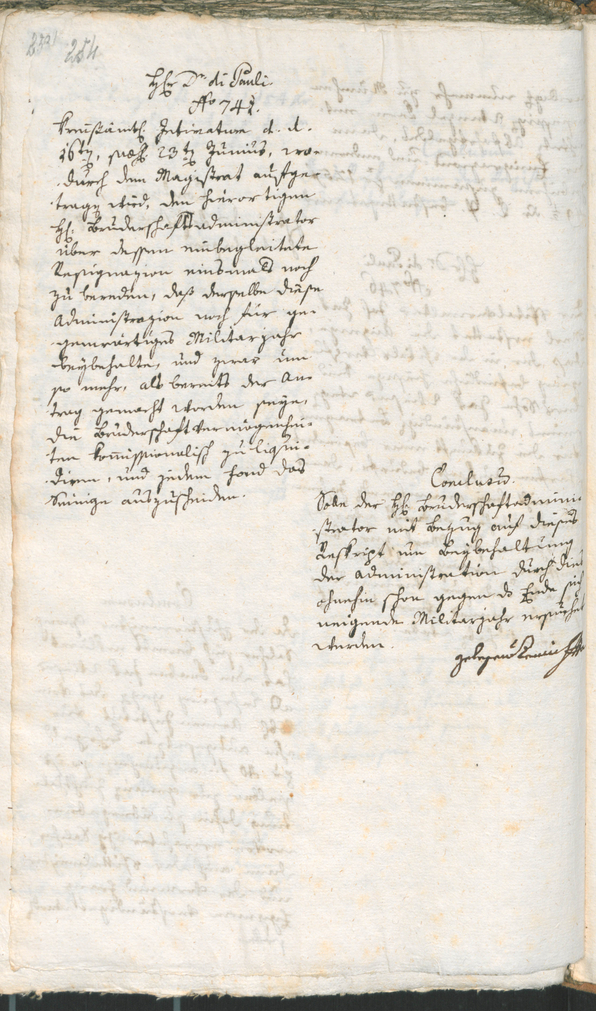 254
H&#x1E; Dr. di Pauli.
No 741.
Kreisämtl. Intimation d. d.
16ten, prs. 23ten Junius, wo-
durch dem Magistrat aufge-
tragen wird, den hierortigen
H: Bruderschaftsadministrator
über dessen einbegleitete
Resignazion einsmals noch
zu bereden, daß derselbe diese
Administrazion noch für ge-
genwärtiges Militarjahr
beybehalte, und zwar um
so mehr, als bereits der An-
trag gemacht worden seye,
die Bruderschaftvermögenhei-
ten kommissionalisch zu liqui-
diren, und jedem Fond das
Seinige auszuscheiden.
Conclusum.
Solle der H: Bruderschaftadmini-
strator mit Bezug auf dieses
Reskript um Beybehaltung
der Administration durch dies
ohnehin schon gegen das Ende sich
neigende Militarjahr ersuchet
werden.